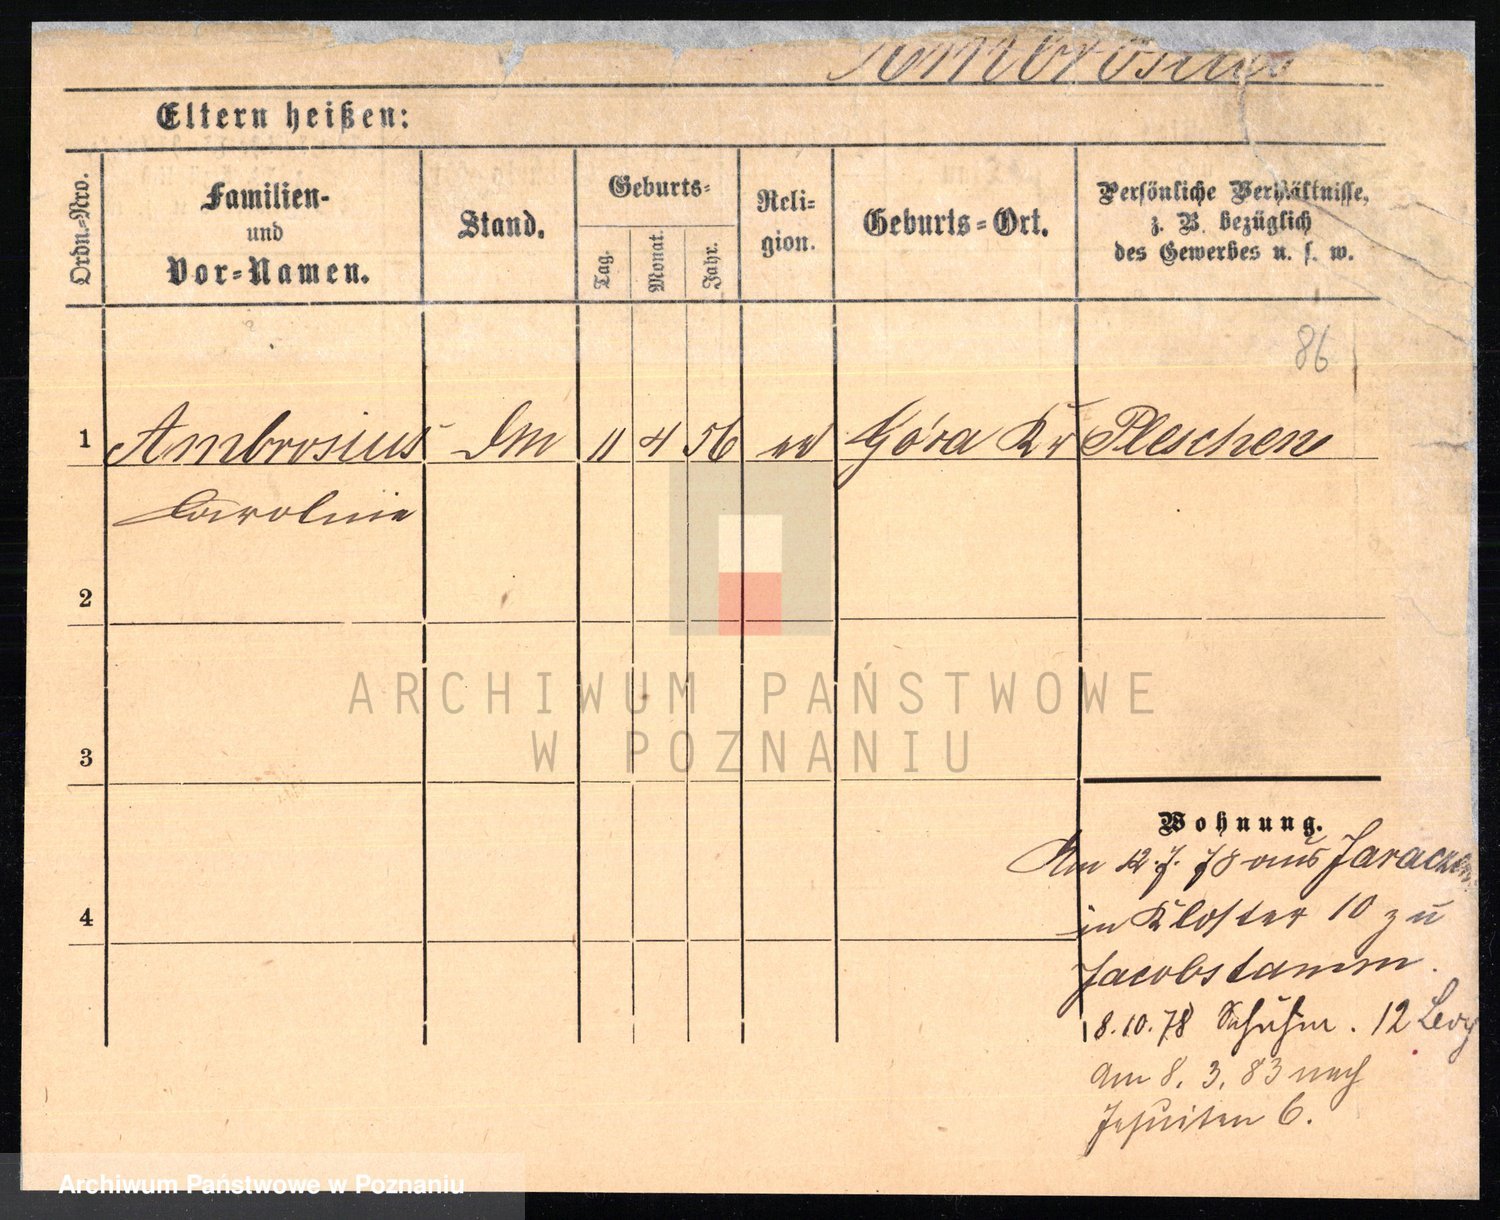 Ambrosius
Eltern heißen:
Ordn.-Nro.
Familien-
und
Vor-Namen.
Stand.
Geburts-
Tag.
Monat.
Jahr.
Reli-
gion.
Geburts-Ort.
Persönliche Verhältnisse,
z. B. bezüglich
des Gewerbes u. s. w.
86
1 Ambrosius Dm 11 4 56 ev Góra Kr Pleschen
Caroline
2
3
4
Wohnung.
Am 12.7.78 aus
in Kloster 10 zu
Jacobstamm.
8.10.78 12 Levy
am 8.3.83 nach
Jesuiten 6.
ARCHIWUM PAŃSTWOWE
W POZNANIU
Archiwum Państwowe w Poznaniu